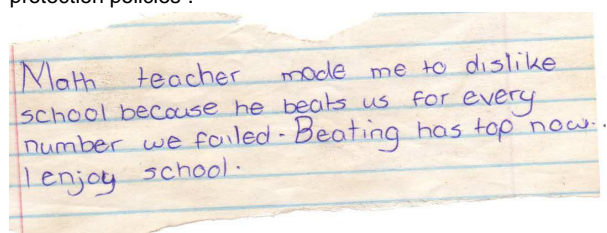 protection policies .
Math teacher made me to dislike
school because he beats us for every
number we failed. Beating has top now..
I enjoy school.